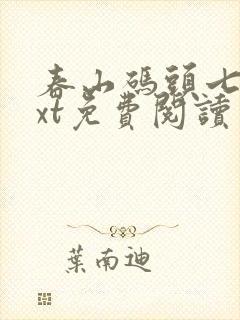 春山碼頭七
xt免費閱讀
葉南迪